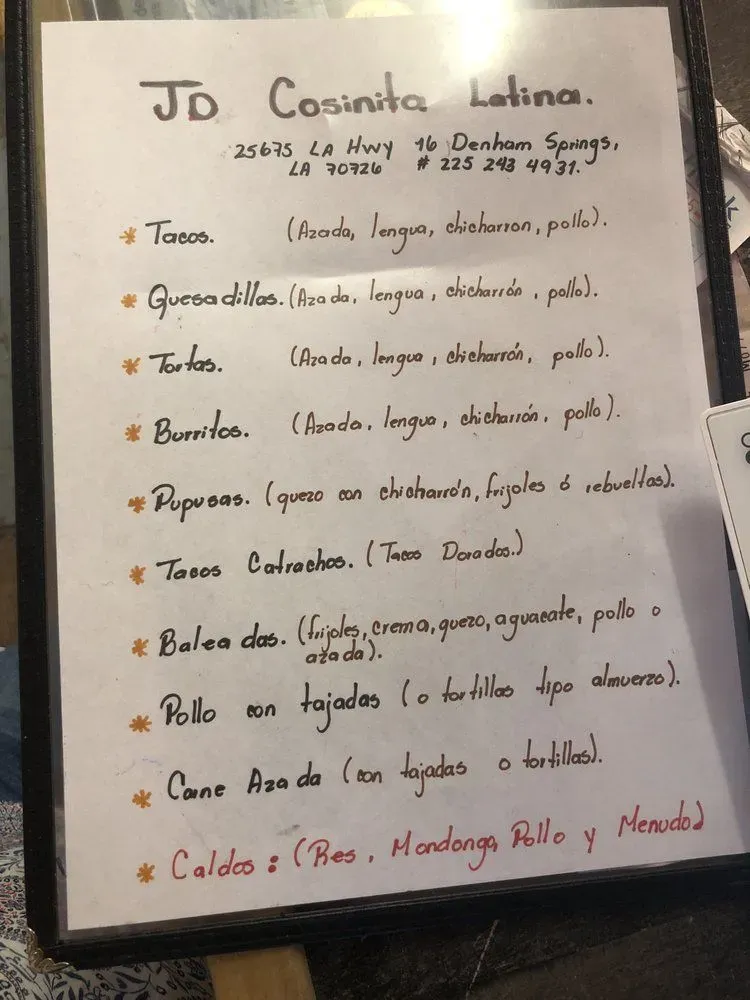 JD Cosinita Latina.
25675 LA Hwy 16 Denham Springs,
LA 70726 # 225 243 4931.
* Tacos. (Azada, lengua, chicharron, pollo).
* Quesadillas. (Azada, lengua, chicharrón, pollo).
* Tortas. (Azada, lengua, chicharrón, pollo).
* Burritos. (Azada, lengua, chicharrón, pollo).
* Pupusas. (quezo con chicharrón, frijoles ó rebueltas).
* Tacos Catrachos. (Tacos Dorados.)
* Baleadas. (frijoles, crema, quezo, aguacate, pollo o
azada).
* Pollo con tajadas (o tortillas tipo almuerzo).
* Carne Azada (con tajadas o tortillas).
* Caldos: (Res, Mondongo, Pollo y Menudo)